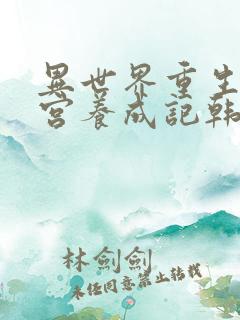 異世界重生
宮養成記韓
林劍劍
未经同意禁止转载